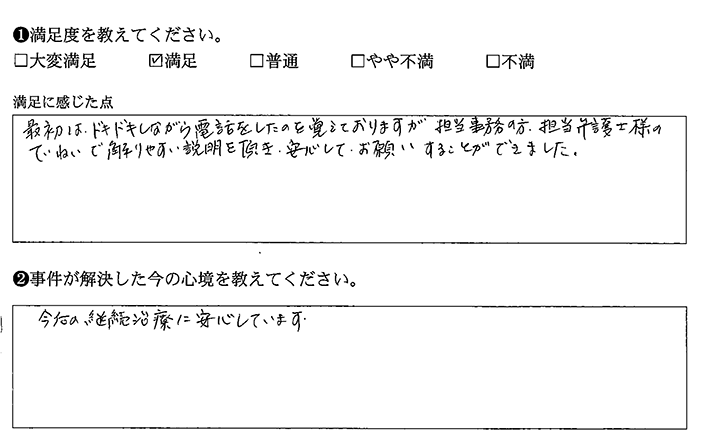 ❶満足度を教えてください。
☐大変満足 ☑満足 ☐普通 ☐やや不満 ☐不満
満足に感じた点
最初は、ドキドキしながら電話をしたのを覚えておりますが 担当事務の方、担当弁護士様の
ていねいで解りやすい説明を頂き、安心して、お願いすることができました。
❷事件が解決した今の心境を教えてください。
今后の、継続治療に安心しています。